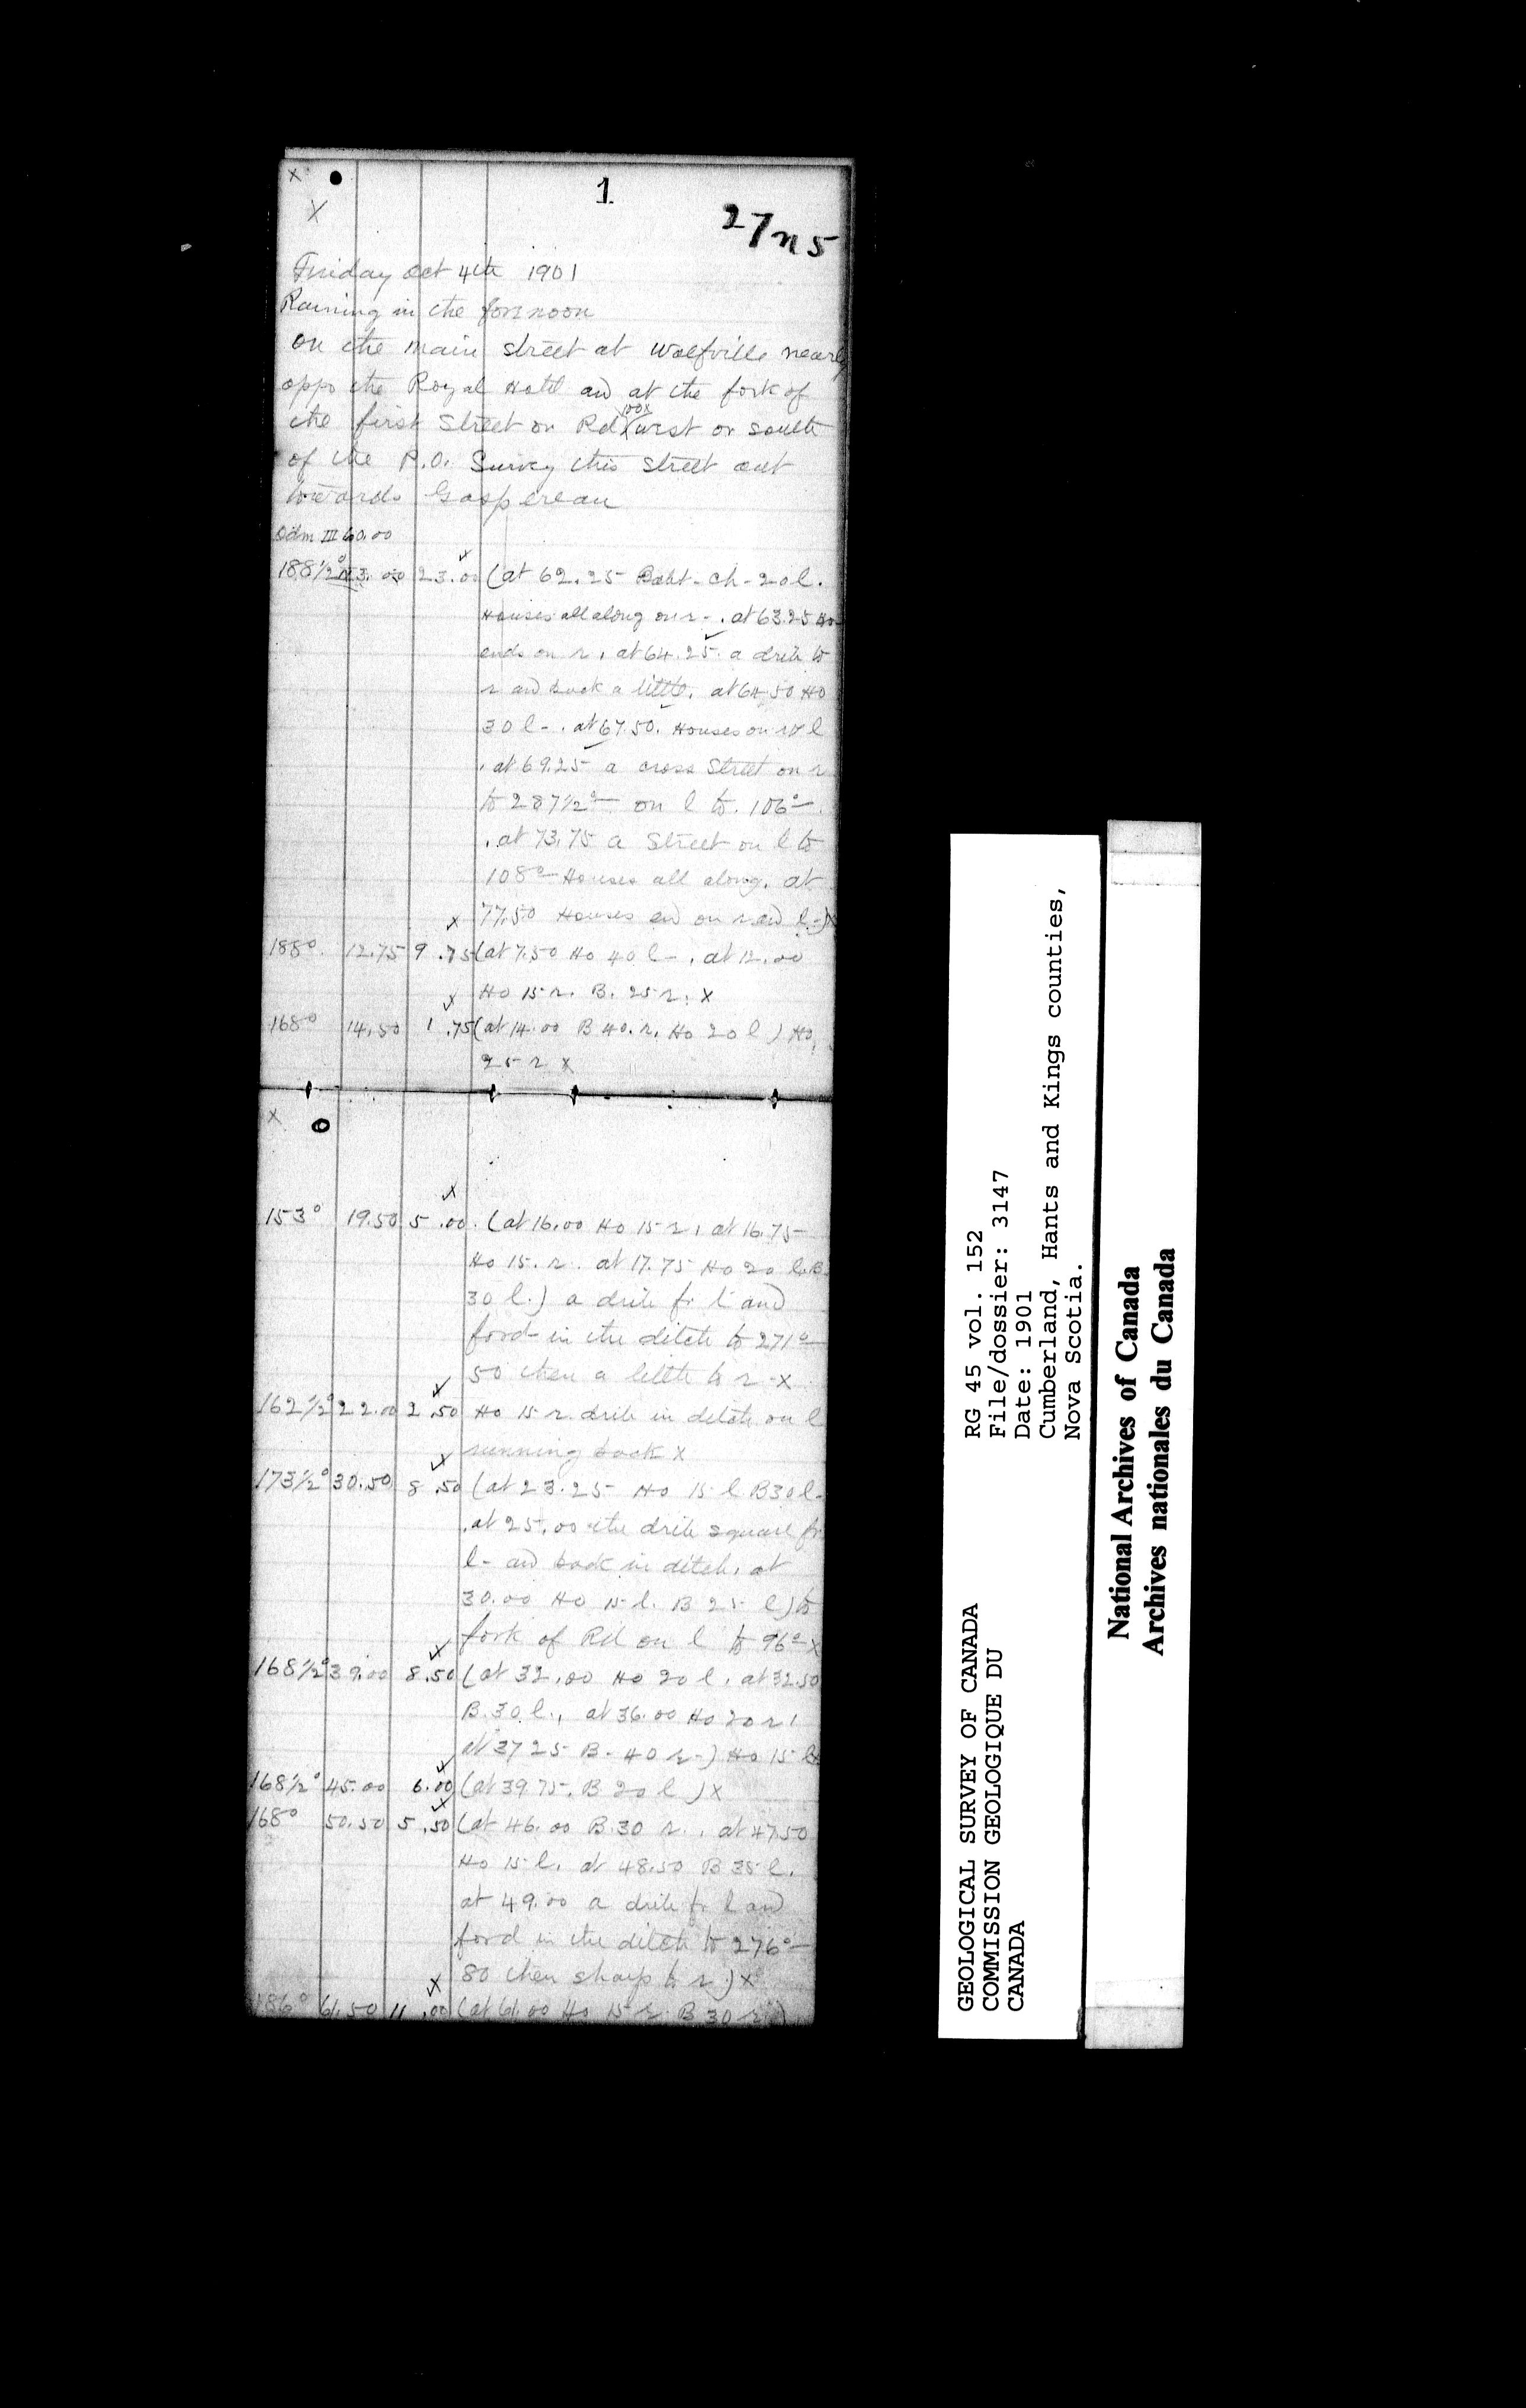 x
1
x
27 n 5
Friday Oct 4th 1901
Raining in the forenoon
on the main street at Wolfville nearly
oppo the Royal Hotel and at the fork of
the first Street or Rd west or south
of the P.O. Survey this street out
towards Gaspereau
Odm III 60.00
188½° 23.00 (at 62.25 Babt-ch-20 l.
Houses all along on r-. at 63.25 Ho
ends on r. at 64.25 a drile to
r and back a little. at 64.50 Ho
30 l-. at 67.50. Houses on r & l
. at 69.25 a cross Street on r
to 287½°- on l to. 106°-.
. at 73.75 a Street on l to
108°- Houses all along. at
77.50 Houses end on r and l-)x
188° 12.75 9.75 (at 7.50 Ho 40 l-. at 12.00
Ho 15 r. B. 25 r. x
168° 14.50 1.75 (at 14.00 B 40. r. Ho 20 l) Ho,
25 r x
x
153° 19.50 5.00 (at 16.00 Ho 15 r, at 16.75-
Ho 15. r. at 17.75 Ho 20 l. B
30 l.) a drile fr l and
ford in the ditch to 271°-
50 then a little to r-x
162½° 22.00 2.50 Ho 15 r. drile in ditch on l
running back x
173½° 30.50 8.50 (at 23.25 Ho 15 l B 30 l-
. at 25.00 the drile square fr
l- and back in ditch. at
30.00 Ho 15 l. B 25 l) to
fork of Rd on l to 96°-x
168½° 39.00 8.50 (at 32.00 Ho 20 l. at 32.50
B. 30 l., at 36.00 Ho 20 r,
at 37 25 B- 40 r-) Ho 15 l x
168½° 45.00 6.00 (at 39 75. B 20 l) x
168° 50.50 5.50 (at 46.00 B. 30 r.. at 47.50
Ho 15 l. at 48.50 B 35 l.
at 49.00 a drile fr l and
ford in the ditch to 276°-
80 then sharp to r) x
186° 61.50 11.00 (at 61.00 Ho 15 r. B 30 r)
GEOLOGICAL SURVEY OF CANADA
COMMISSION GEOLOGIQUE DU
CANADA
RG 45 vol. 152
File/dossier: 3147
Date: 1901
Cumberland, Hants and Kings counties,
Nova Scotia.
National Archives of Canada
Archives nationales du Canada